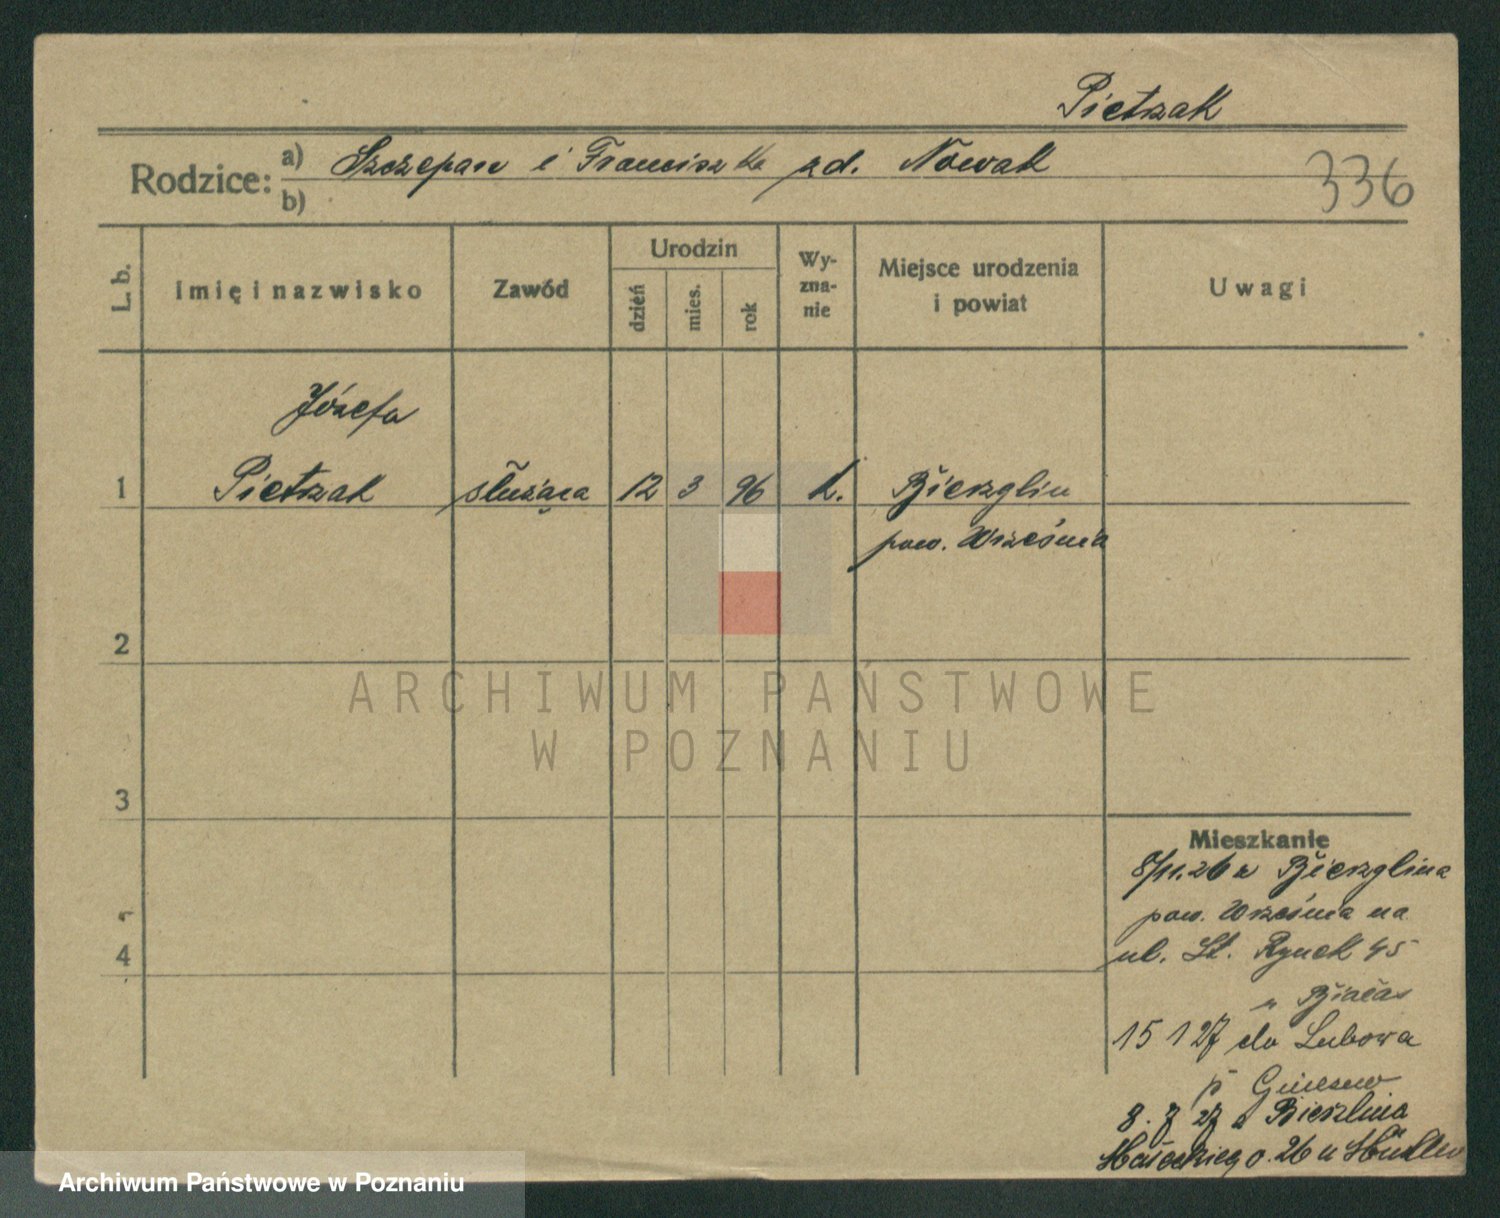 Pietrzak
Rodzice: a) Szczepan i Franciszka zd. Nowak
b)
336
L. b.
Imię i nazwisko
Zawód
Urodzin
dzień
mies.
rok
Wy-
zna-
nie
Miejsce urodzenia
i powiat
Uwagi
Józefa
1 Pietrzak służąca 12 3 96 k. Bierzglin
pow. Września
2
ARCHIWUM PAŃSTWOWE
W POZNANIU
3
Mieszkanie
8/11.26 z Bierzglina
pow. Września na
4
ul. St. Rynek 45
u Białas
15 1 27 do Lubowa
p Gniezno
8. 7 27 z Bierzlina
26 u
Archiwum Państwowe w Poznaniu